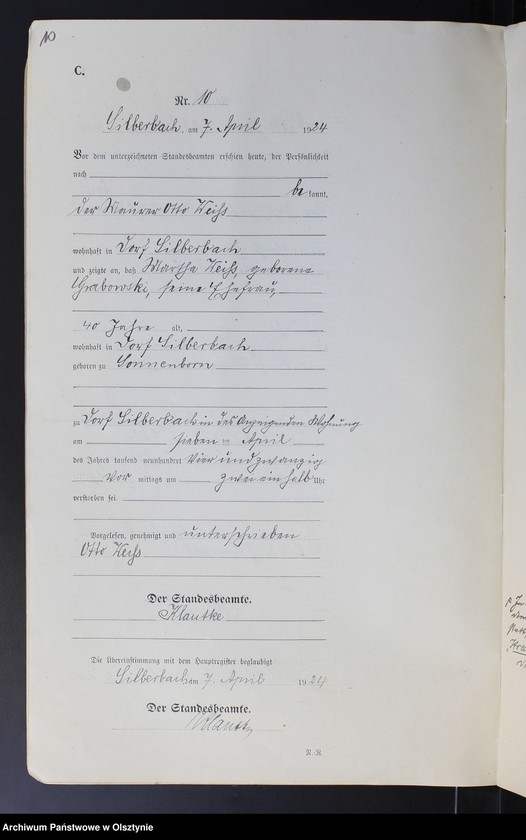 10
C.
Nr. 10
Silberbach, am 7. April 1924
Vor dem unterzeichneten Standesbeamten erschien heute, der Persönlichkeit
nach
be kannt,
der Maurer Otto Weiß
wohnhaft in Dorf Silberbach
und zeigte an, daß Martha Weiß, geborene
Grabowski, seine Ehefrau,
40 Jahre alt,
wohnhaft in Dorf Silberbach
geboren zu Sonnenborn
zu Dorf Silberbach in des Anzeigenden Wohnung
am sieben ten April
des Jahres tausend neunhundert vierundzwanzig
Vor mittags um zweieinhalb Uhr
verstorben sei
Vorgelesen, genehmigt und unterschrieben
Otto Weiß
Der Standesbeamte.
Klautke
Die Übereinstimmung mit dem Hauptregister beglaubigt
Silberbach am 7. April 1924
Der Standesbeamte.
Klautke
Archiwum Państwowe w Olsztynie